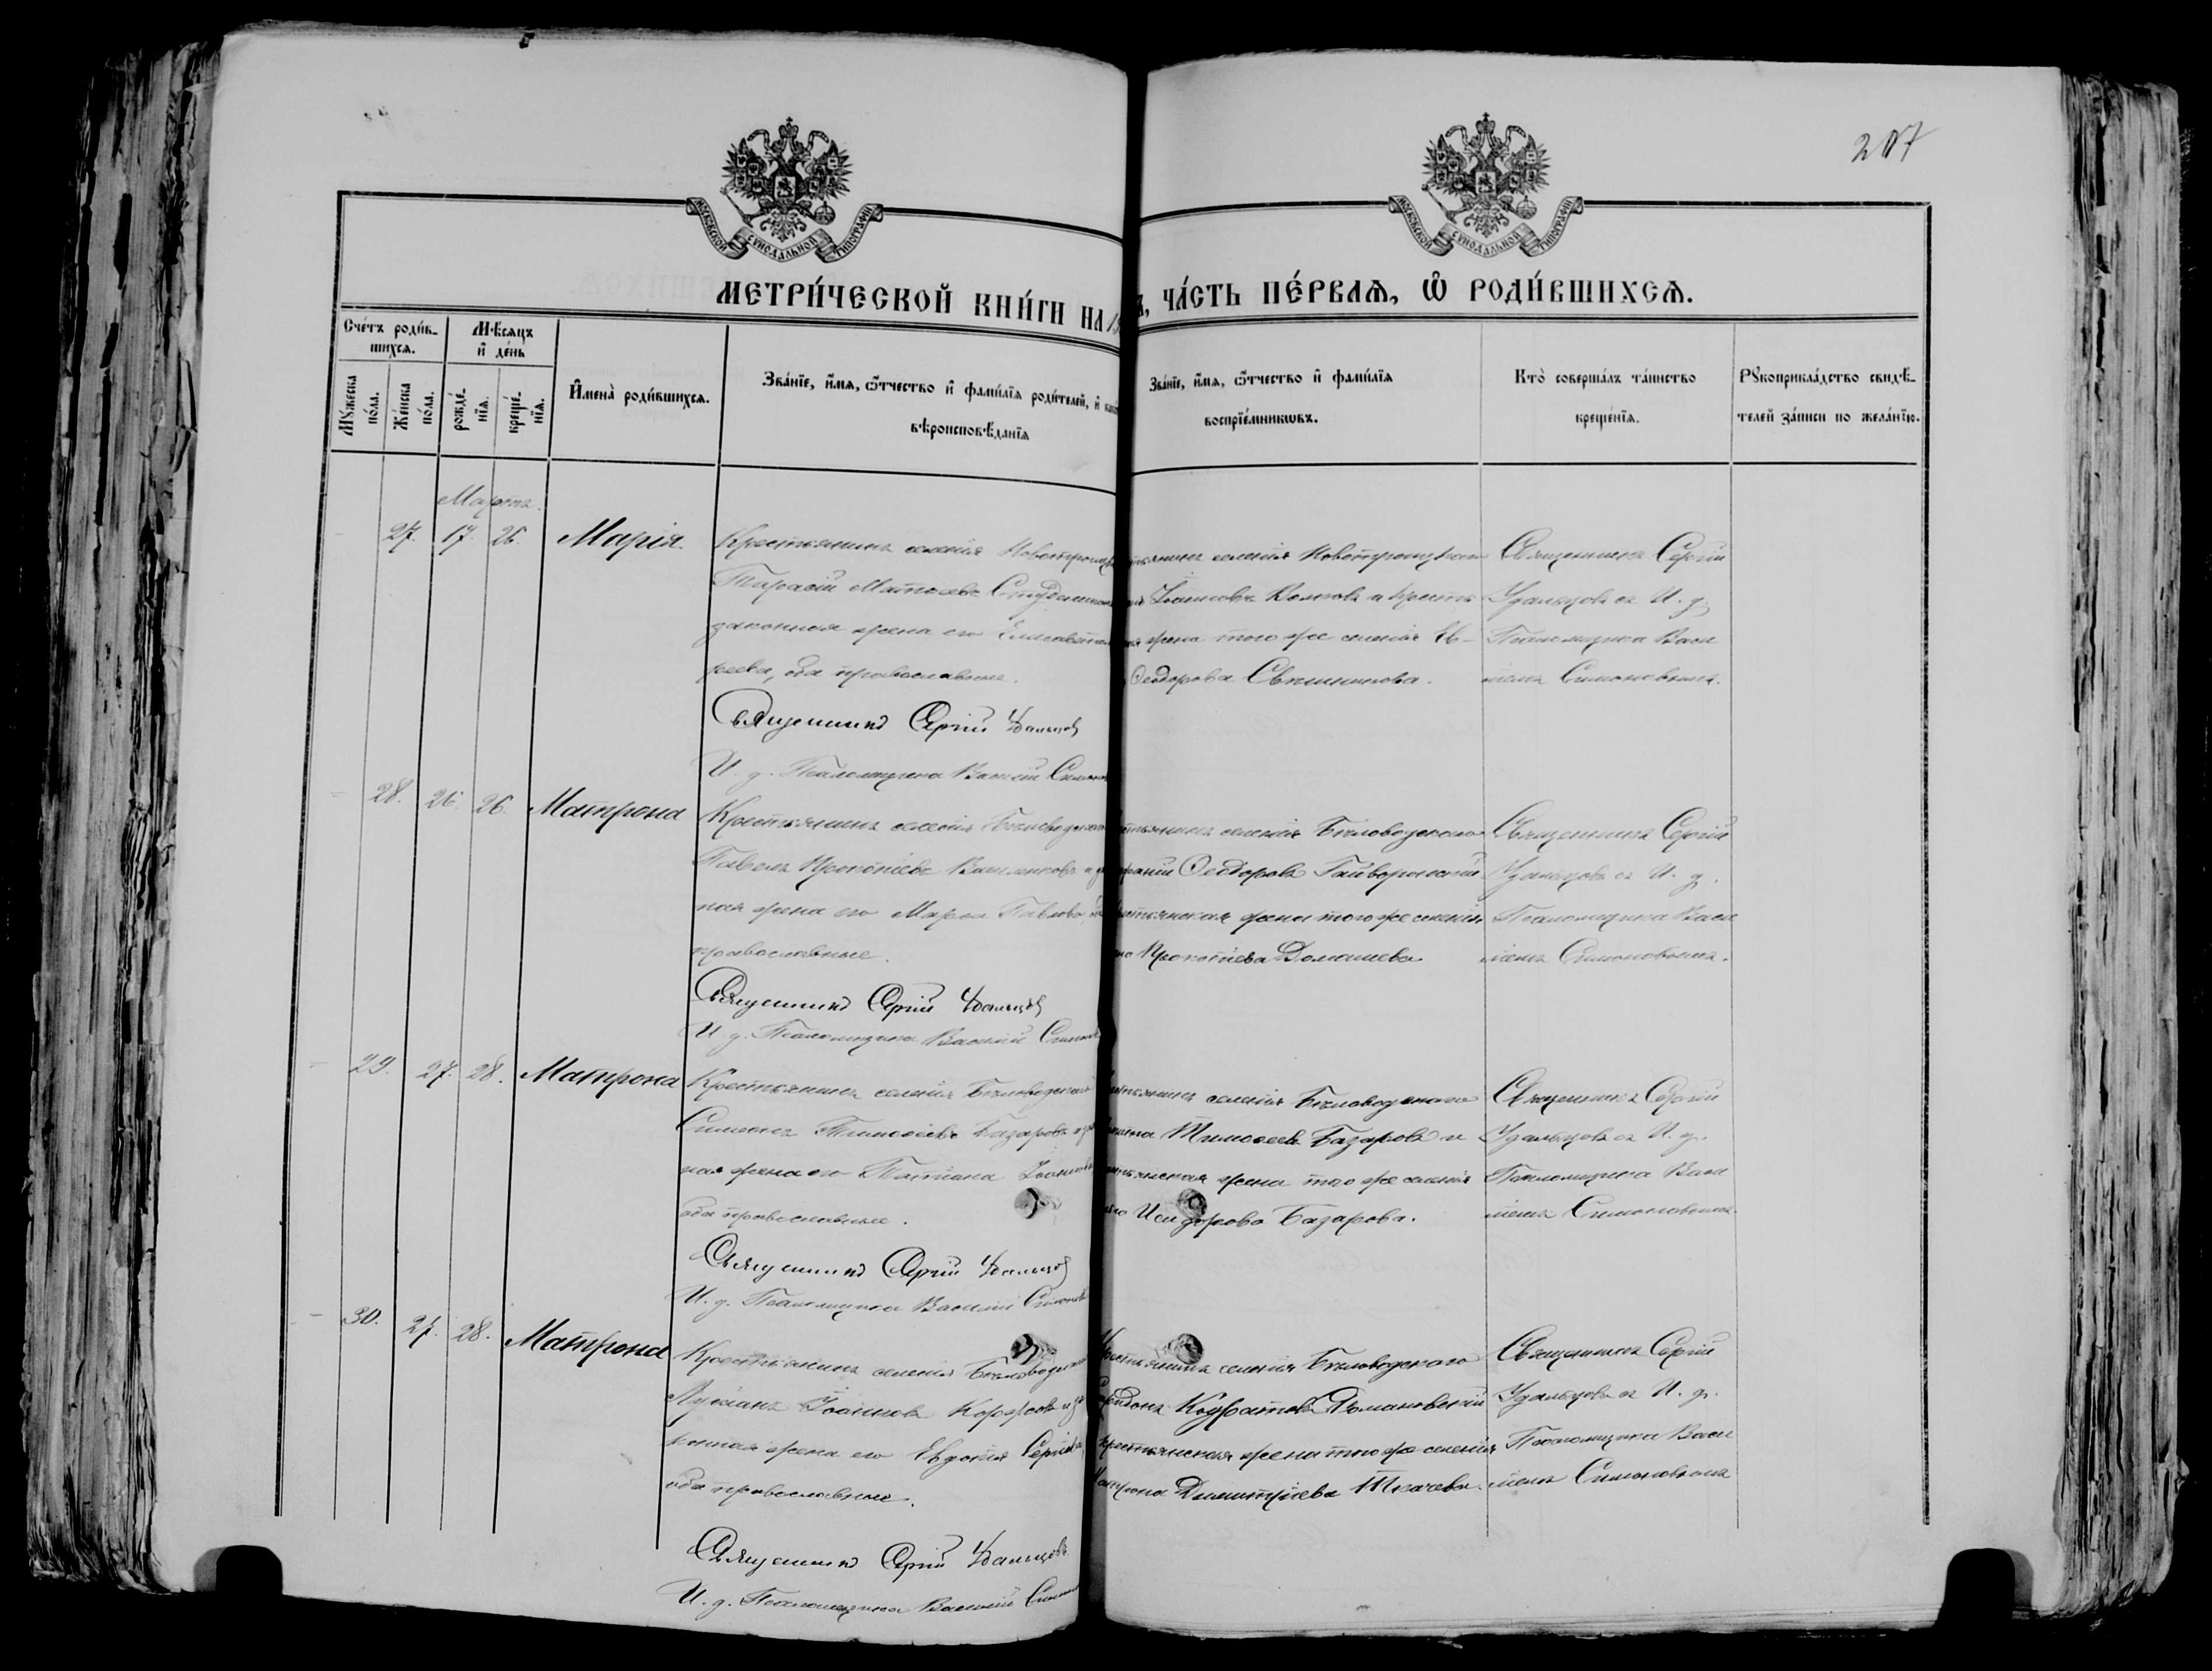 207
МОСКОВСКОЙ СУНОДАЛЬНОЙ ТИПОГРАФІИ
МОСКОВСКОЙ СУНОДАЛЬНОЙ ТИПОГРАФІИ
МЕТРИ́ЧЕСКОЙ КНИ́ГИ НА
, ЧА́СТЬ ПЕ́РВАѦ, Ѽ РОДИ́ВШИХСѦ.
Сче́тъ роди́в-
шихсѧ.
Мѣ́сяцъ
и҆ де́нь
Мꙋ́жеска
по́ла.
Же́нска
по́ла.
рожде́-
нїѧ.
креще́-
нїѧ.
И҆мена̀ роди́вшихсѧ.
Зва́нїе, и҆́мѧ, ѻ҆́тчество и҆ фами́лїѧ роди́телей, и҆
вѣроисповѣ́данїѧ
Зва́нїе, и҆́мѧ, ѻ҆́тчество и҆ фами́лїѧ
воспрїе́мникѡвъ.
Кто̀ соверша́лъ та́инство
креще́нїѧ.
Рꙋкоприкла́дство свидѣ́-
телей за́писи по жела́нїю.
Марта.
27. 17. 26. Марія.
Крестьянинъ селенія Новотроицк
Тарасій Матѳеевъ
законная жена его Елисавета
реева, оба православные.
Священникъ Сергій Удальцовъ
И. д. Псаломщика Василій Симон
тьянинъ селенія Новотроицкаго
Іоанновъ и крест
жена того же селенія Ев-
Ѳеодорова
Священникъ Сергій
Удальцовъ съ И. д.
Псаломщика Васи
ліемъ Симоновымъ.
28. 26. 26. Матрона
Крестьянинъ селенія Бѣловодскаго
Павелъ Прокопіевъ
ная жена его Марѳа Павлова
православные.
Священникъ Сергій Удальцовъ
И. д. Псаломщика Василій Симон
тьянинъ селенія Бѣловодскаго
Ѳеодоровъ Гайворонскій
стьянская жена того же селенія
Прокопіева Домашева
Священникъ Сергій
Удальцовъ съ И. д.
Псаломщика Васи
ліемъ Симоновымъ.
29. 27. 28. Матрона
Крестьянинъ селенія Бѣловодскаго
Симеонъ Тимоѳеевъ Базаровъ и
ная жена его Татіана Іоаннова
оба православные.
Священникъ Сергій Удальцовъ
И. д. Псаломщика Василій Симонов
тьянинъ селенія Бѣловодскаго
Тимоѳеевъ Базаровъ и
тьянская жена того же селенія
Исидорова Базарова.
Священникъ Сергій
Удальцовъ съ И. д.
Псаломщика Васи
ліемъ Симоновымъ.
30. 27. 28. Матрона
Крестьянинъ селенія Бѣловодск
Лукіанъ Іоанновъ и за
конная жена его Евдокія Сергіева
оба православные.
Священникъ Сергій Удальцовъ
И. д. Псаломщика Василій Симон
Крестьянинъ селенія Бѣловодскаго
Кодратовъ Романовскій
крестьянская жена того же селенія
Матрона Димитріева Ткачева.
Священникъ Сергій
Удальцовъ съ И. д.
Псаломщика Васи
ліемъ Симоновымъ